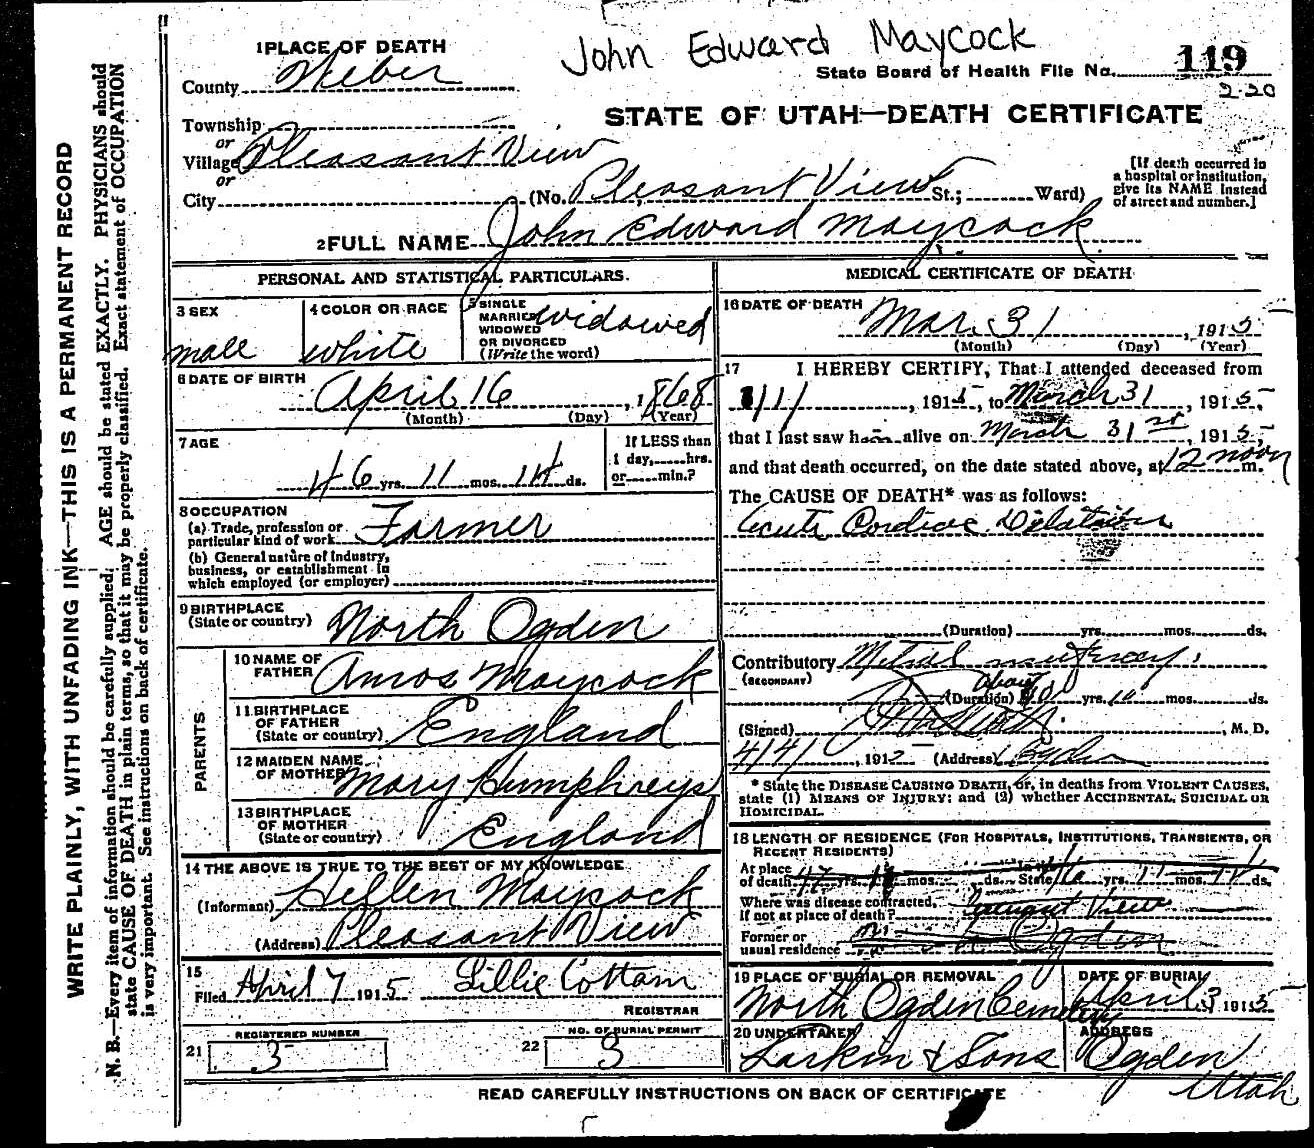 John Edward Maycock
1 PLACE OF DEATH
County Weber
State Board of Health File No. 119
2-20
STATE OF UTAH—DEATH CERTIFICATE
Township
or
Village Pleasant View
or
City (No. Pleasant View St.; Ward)
[If death occurred in
a hospital or institution,
give its NAME instead
of street and number.]
2 FULL NAME John Edward Maycock
PERSONAL AND STATISTICAL PARTICULARS.
3 SEX
male
4 COLOR OR RACE
white
5 SINGLE
MARRIED
WIDOWED
OR DIVORCED
(Write the word)
widowed
6 DATE OF BIRTH
April 16, 1868
(Month) (Day) (Year)
7 AGE
46 yrs. 11 mos. 14 ds.
If LESS than
1 day, hrs.
or min.?
8 OCCUPATION
(a) Trade, profession or
particular kind of work Farmer
(b) General nature of Industry,
business, or establishment in
which employed (or employer)
9 BIRTHPLACE
(State or country) North Ogden
PARENTS
10 NAME OF
FATHER Amos Maycock
11 BIRTHPLACE
OF FATHER
(State or country) England
12 MAIDEN NAME
OF MOTHER Mary Humphreys
13 BIRTHPLACE
OF MOTHER
(State or country) England
14 THE ABOVE IS TRUE TO THE BEST OF MY KNOWLEDGE
(Informant) Hellen Maycock
(Address) Pleasant View
15
Filed April 7 1915 Lillie Cottam
REGISTRAR
REGISTERED NUMBER
21 3
NO. OF BURIAL PERMIT
22 3
MEDICAL CERTIFICATE OF DEATH
16 DATE OF DEATH
Mar. 31, 1915
(Month) (Day) (Year)
17 I HEREBY CERTIFY, That I attended deceased from
1/1/, 1915, to March 31, 1915,
that I last saw him alive on March 31st, 1915,
and that death occurred, on the date stated above, at 12 noon m.
The CAUSE OF DEATH* was as follows:
Acute Cardiac Dilatation
(Duration) yrs. mos. ds.
Contributory Mitral
(SECONDARY)
about
(Duration) yrs. mos. ds.
(Signed) , M. D.
4/4/, 191 (Address) Ogden
* State the DISEASE CAUSING DEATH, or, in deaths from VIOLENT CAUSES,
state (1) MEANS OF INJURY; and (2) whether ACCIDENTAL, SUICIDAL OR
HOMICIDAL.
18 LENGTH OF RESIDENCE (FOR HOSPITALS, INSTITUTIONS, TRANSIENTS, OR
RECENT RESIDENTS)
At place
of death yrs. mos. ds. State yrs. mos. ds.
Where was disease contracted,
If not at place of death? Pleasant View
Former or
usual residence Ogden
19 PLACE OF BURIAL OR REMOVAL
North Ogden Cemetery
DATE OF BURIAL
April 3 1915
20 UNDERTAKER
Larkin & Sons
ADDRESS
Ogden
Utah
READ CAREFULLY INSTRUCTIONS ON BACK OF CERTIFICATE
WRITE PLAINLY, WITH UNFADING INK—THIS IS A PERMANENT RECORD
N. B.—Every item of information should be carefully supplied. AGE should be stated EXACTLY. PHYSICIANS should
state CAUSE OF DEATH in plain terms, so that it may be properly classified. Exact statement of OCCUPATION
is very important. See instructions on back of certificate.